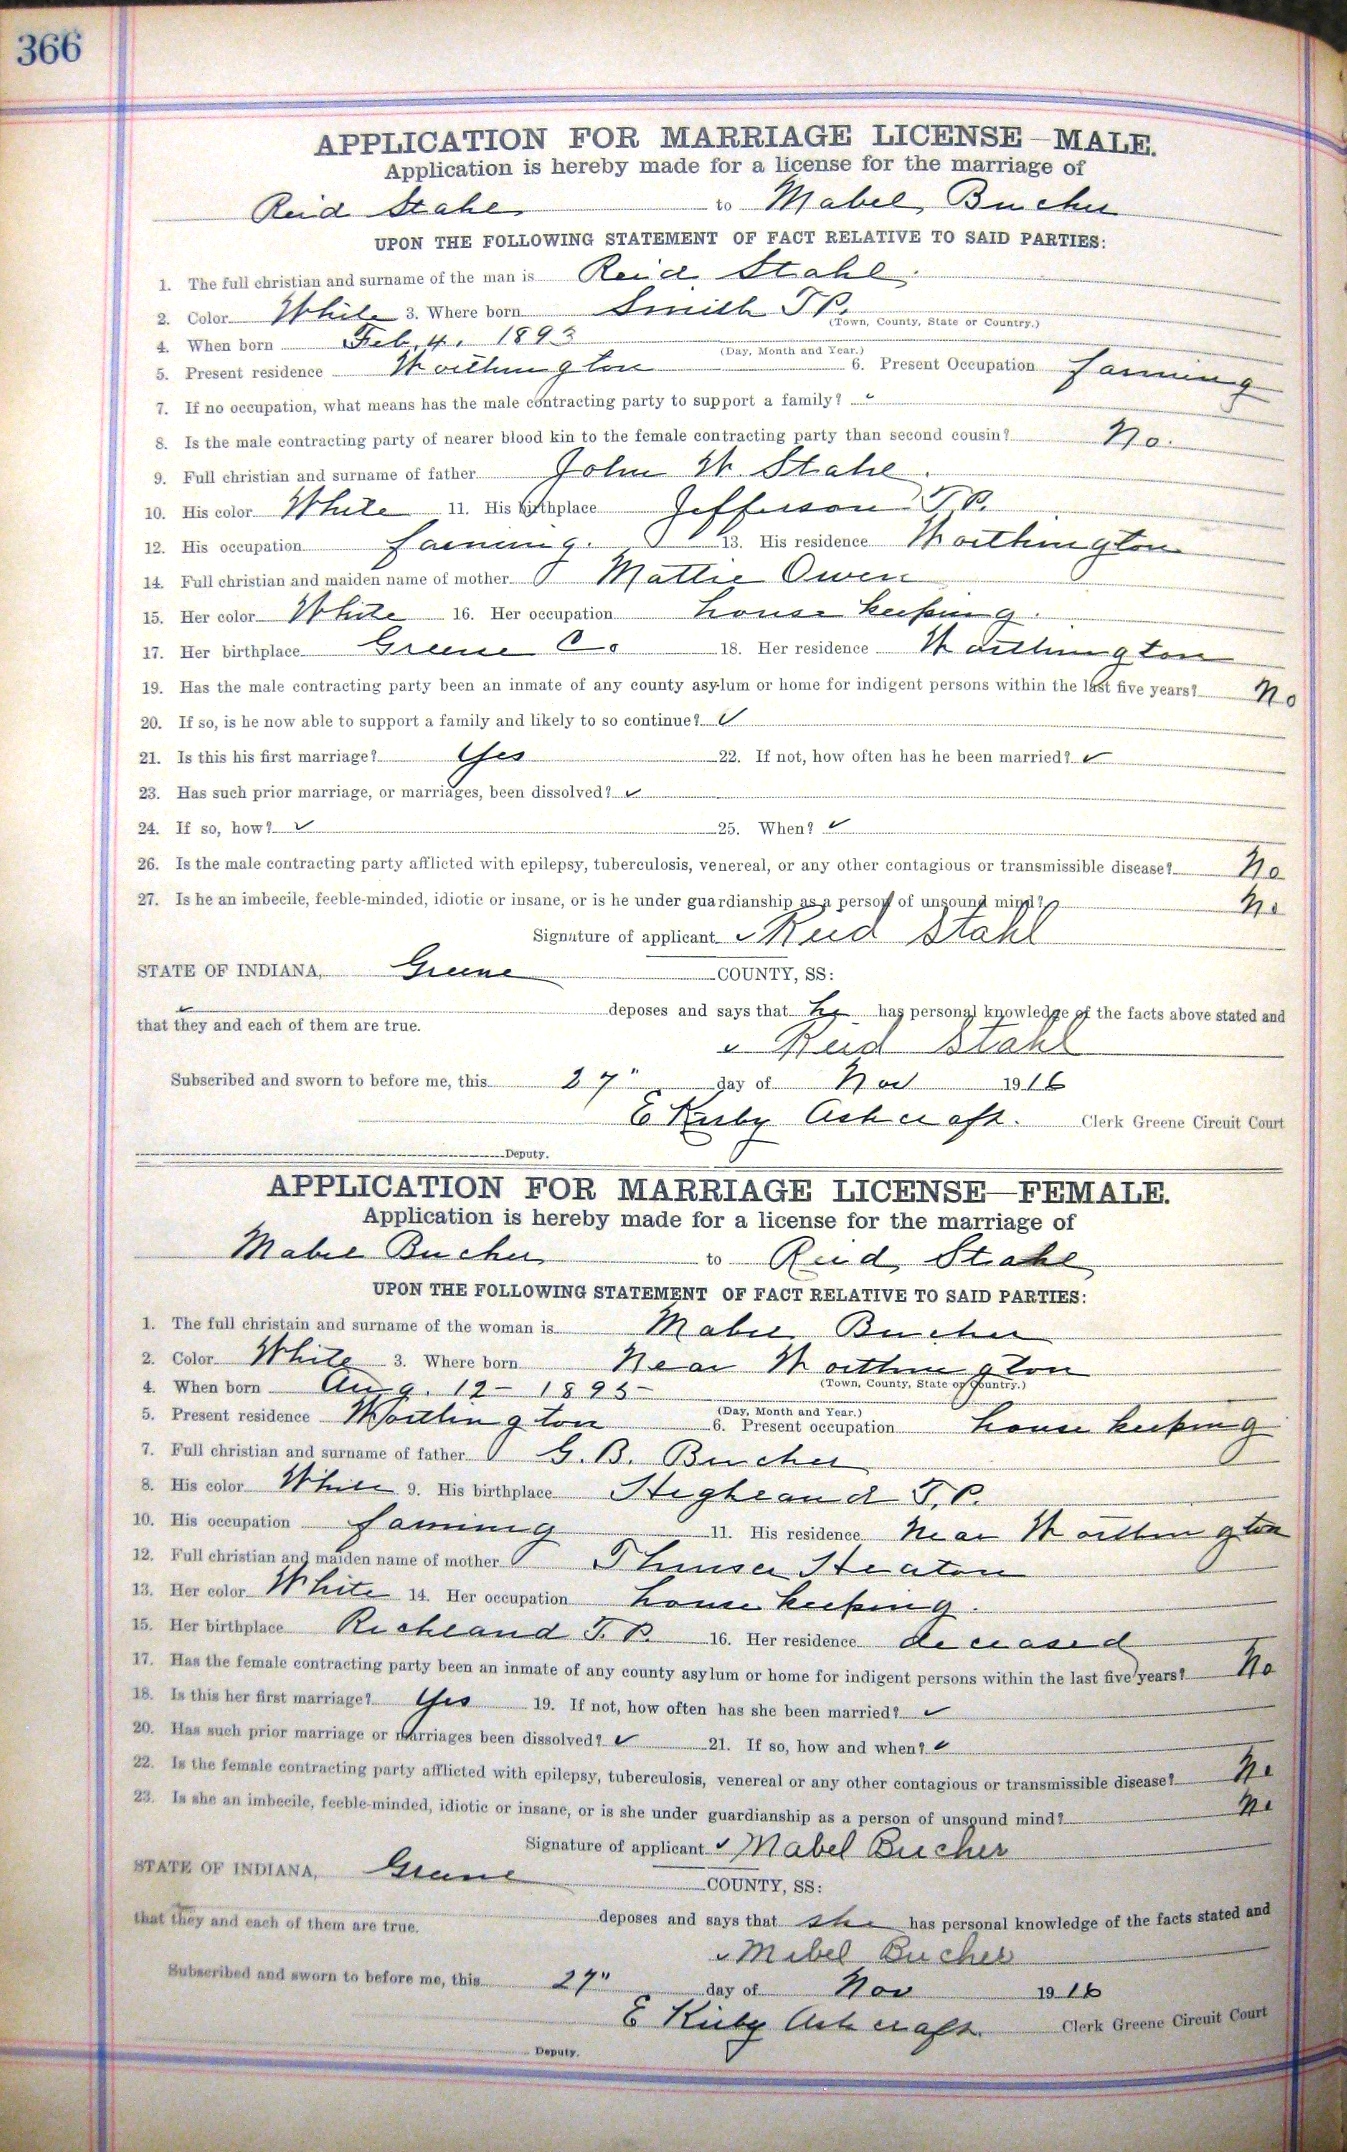 366
APPLICATION FOR MARRIAGE LICENSE—MALE.
Application is hereby made for a license for the marriage of
Reid Stahl to Mabel Bucher
UPON THE FOLLOWING STATEMENT OF FACT RELATIVE TO SAID PARTIES:
1. The full christian and surname of the man is Reid Stahl.
2. Color White 3. Where born Smith T P.
(Town, County, State or Country.)
4. When born Feb. 4. 1893
(Day, Month and Year.)
5. Present residence Worthington 6. Present Occupation farming
7. If no occupation, what means has the male contracting party to support a family? "
8. Is the male contracting party of nearer blood kin to the female contracting party than second cousin? No.
9. Full christian and surname of father John W. Stahl.
10. His color White 11. His birthplace Jefferson T.P.
12. His occupation farming. 13. His residence Worthington
14. Full christian and maiden name of mother Mattie Owen
15. Her color White 16. Her occupation house keeping.
17. Her birthplace Greene Co 18. Her residence Worthington
19. Has the male contracting party been an inmate of any county asylum or home for indigent persons within the last five years? No
20. If so, is he now able to support a family and likely to so continue? ✓
21. Is this his first marriage? Yes 22. If not, how often has he been married? ✓
23. Has such prior marriage, or marriages, been dissolved? ✓
24. If so, how? ✓ 25. When? ✓
26. Is the male contracting party afflicted with epilepsy, tuberculosis, venereal, or any other contagious or transmissible disease? No
27. Is he an imbecile, feeble-minded, idiotic or insane, or is he under guardianship as a person of unsound mind? No
Signature of applicant ✓ Reid Stahl
STATE OF INDIANA, Greene COUNTY, SS:
✓ deposes and says that he has personal knowledge of the facts above stated and
that they and each of them are true.
✓ Reid Stahl
Subscribed and sworn to before me, this 27" day of Nov 1916
E Kirby Ashcraft. Clerk Greene Circuit Court
Deputy.
APPLICATION FOR MARRIAGE LICENSE—FEMALE.
Application is hereby made for a license for the marriage of
Mabel Bucher to Reid Stahl
UPON THE FOLLOWING STATEMENT OF FACT RELATIVE TO SAID PARTIES:
1. The full christain and surname of the woman is Mabel Bucher
2. Color White 3. Where born Near Worthington
(Town, County, State or Country.)
4. When born Aug. 12 - 1895 -
(Day, Month and Year.)
5. Present residence Worthington 6. Present occupation house keeping
7. Full christian and surname of father G. B. Bucher
8. His color White 9. His birthplace Highland T.P.
10. His occupation farming 11. His residence Near Worthington
12. Full christian and maiden name of mother Heaton
13. Her color White 14. Her occupation house keeping.
15. Her birthplace Richland T.P. 16. Her residence deceased
17. Has the female contracting party been an inmate of any county asylum or home for indigent persons within the last five years? No
18. Is this her first marriage? Yes 19. If not, how often has she been married? ✓
20. Has such prior marriage or marriages been dissolved? ✓ 21. If so, how and when? ✓
22. Is the female contracting party afflicted with epilepsy, tuberculosis, venereal or any other contagious or transmissible disease? No
23. Is she an imbecile, feeble-minded, idiotic or insane, or is she under guardianship as a person of unsound mind? No
Signature of applicant ✓ Mabel Bucher
STATE OF INDIANA, Greene COUNTY, SS:
deposes and says that she has personal knowledge of the facts stated and
that they and each of them are true.
✓ Mabel Bucher
Subscribed and sworn to before me, this 27" day of Nov 1916
E Kirby Ashcraft. Clerk Greene Circuit Court
Deputy.